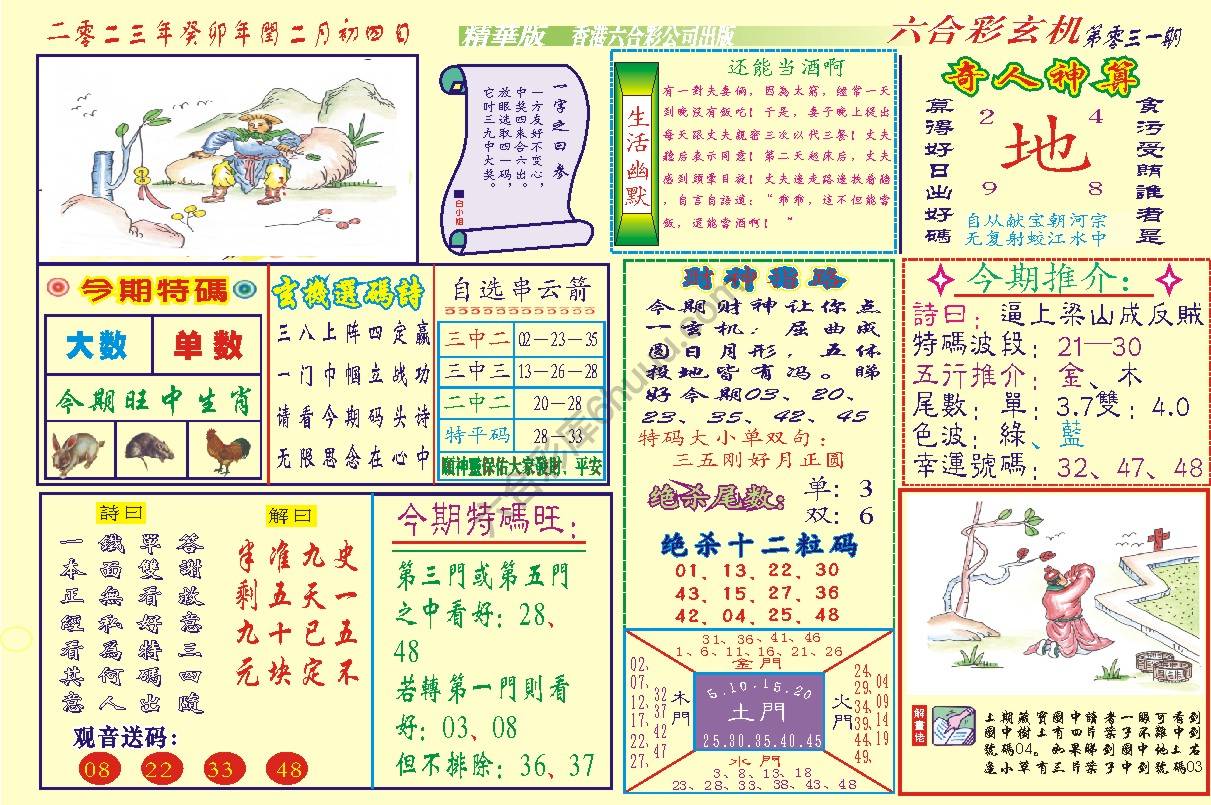 二零二三年癸卯年閏二月初四日
精華版 香港六合彩公司出版
六合彩玄机 第零三一期
一字之曰参
一方友好不变心，
中奖四来合六出。
放眼选取四一码，
它叶三九中大奖。
白小姐
生活幽默
还能当酒啊
有一對夫妻倆，因為太窮，經常一天
到晚沒有飯吃！于是，妻子晚上提出
每天跟丈夫親密三次以代三餐！丈夫
聽后表示同意！第二天起床后，丈夫
感到頭暈目旋！丈夫邊走路邊扶着牆
，自言自語道：“乖乖，這不但能當
飯，還能當酒啊！ ”
奇人神算
算得好日出好碼
2 4
地
9 8
貪污受賄誰者是
自从献宝朝河宗
无复射蛟江水中
今期特碼
大数 单数
今期旺中生肖
玄機選碼詩
三八上阵四定赢
一门巾帼立战功
请看今期码头诗
无限思念在心中
自选串云箭
三中二 02—23—35
三中三 13—26—28
二中二 20—28
特平码 28—33
願神靈保佑大家發財、平安
财神指路
今期财神让你点
一玄机：屈曲成
圆日月形，五体
投地皆有冯。睇
好今期03、20、
23、35、42、45
特码大小单双句：
三五刚好月正圆
绝杀尾数： 单：3
双：6
绝杀十二粒码
01、13、22、30
43、15、27、36
42、04、25、48
今期推介：
詩曰：逼上梁山成反賊
特碼波段：21—30
五行推介：金、木
尾數：單：3.7雙：4.0
色波：綠、藍
幸運號碼：32、47、48
詩曰
一本正經看其意
鐵面無私為何人
單雙看好特碼出
答謝故意三四隨
解曰
半剩九元
准五十块
九天已定
史一五不
观音送码：
08 22 33 48
今期特碼旺：
第三門或第五門
之中看好：28、
48
若轉第一門則看
好：03、08
但不排除：36、37
31、36、41、46
1、6、11、16、21、26
金門
02、07、12、17、22、27、
32、37、42、47
木門
5.10.15.20
土門
25.30.35.40.45
火門
24、29、34、39、44、49、
04、09、14、19
水門
3、8、13、18
23、28、33、38、43、48
解畫佬
上期藏寶圖中讀者一眼可看到
圖中樹上有四片葉子不難中到
號碼04。如果睇到圖中地上右
邊小草有三片葉子中到號碼03
六合彩库6huuu.com